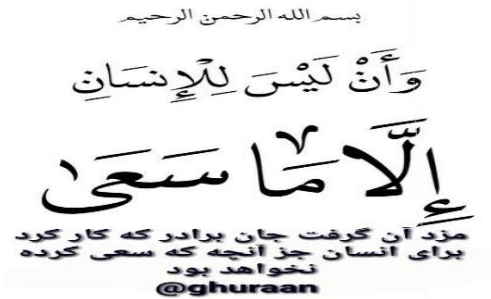 بسم الله الرحمن الرحيم
وَأَنْ لَيْسَ لِلْإِنسَانِ
إِلَّا مَا سَعَىٰ
مزد آن گرفت جان برادر که کار کرد
برای انسان جز آنچه که سعی کرده
نخواهد بود
@ghuraan